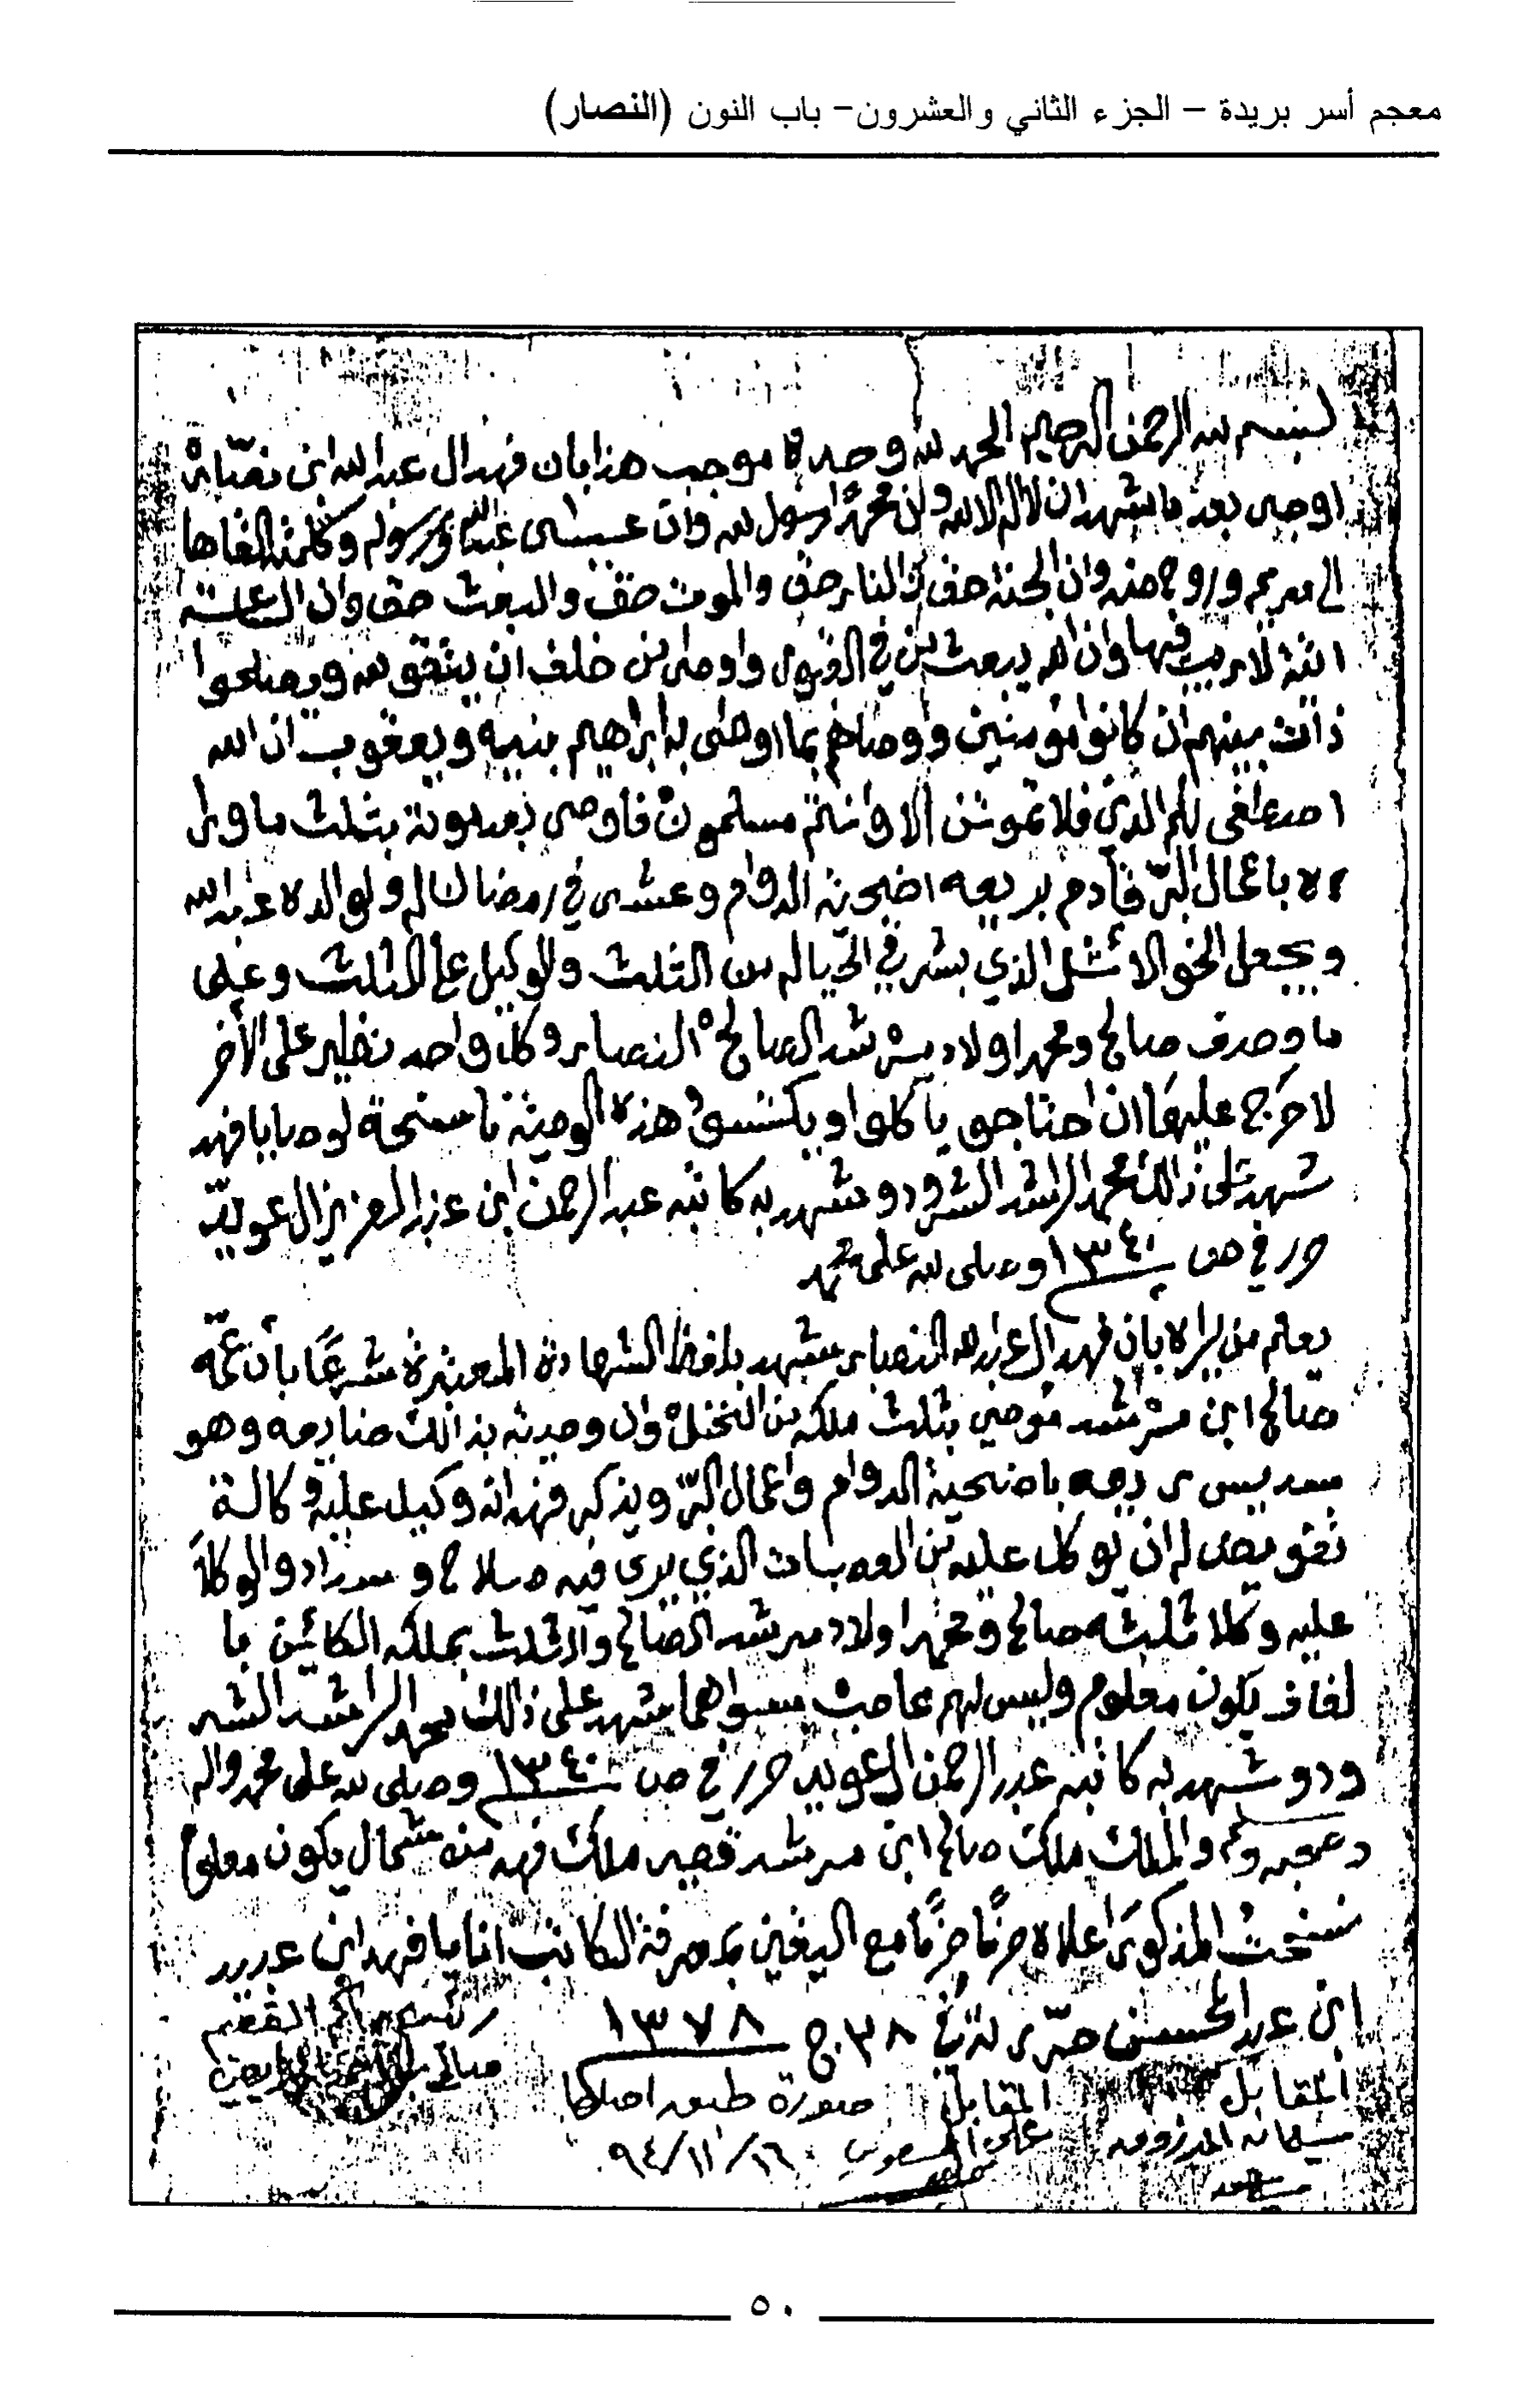 معجم أسر بريدة – الجزء الثاني والعشرون– باب النون (النصار)
بسم الله الرحمن الرحيم الحمد لله وحده موجب هذا بان فهد ال عبدالله ابن نصار
اوصى بعد ما شهد ان لا اله الا الله وان محمدا رسول الله وان عيسى عبدالله ورسوله وكلمته القاها
الى مريم وروح منه وان الجنة حق وان النار حق والموت حق والبعث حق وان الساعة
اتية لا ريب فيها وان الله يبعث من في القبور واوصى من خلف ان يتقو الله ويصلحوا
ذات بينهم ان كانوا مؤمنين ووصاهم بما اوصى به ابراهيم بنيه ويعقوب ان الله
اصطفى لكم الدين فلا تموتن الا وانتم مسلمون فاوصى بعد موته بثلث ما ورا
ه باعمال البر قادم بريعه اضحية الدوام وعشى في رمضان له ولوالده عبدالله
ويجعل الخو الاثل الذي بشرقي الحيالة من الثلث والوكيل على الثلث وعلى
ما وصف صالح ومحمد اولاد مرشد الصالح النصار وكل واحد نظير على الأخر
لا حرج عليهما ان احتاجو ياكلوا ويكتسوا هذه الوصية ناسخة لوصايا فهد
شهد على ذالك محمد الراشد الشرودو وشهد به كاتبه عبدالرحمن ابن عبدالعزيز ال عويد
حرر في ص ١٣٤٠ وصلى الله على محمد
يعلم من يراه بان فهد ال عبدالله النصار شهد بلفظ الشهادة المعتبرة شرعًا بأن عمه
صالح ابن مرشد موصي بثلث ملكه من النخل وان وصيته بذالك وهو
ريعه باضحية الدوام واعمال البر ويذكر فهد انه وكيل عليه وكالة
تفويض له ان يوكل عليه من العصبات الذي يرى فيه صلاح و والوكلا
عليه وكلا ثلثه صالح ومحمد اولاد مرشد الصالح والثلث بملكه الكائن با
يكون معلوم وليس لهم عاصب سواهما شهد على ذالك محمد الراشد الشر
ودو شهد به كاتبه عبدالرحمن ال عويد حرر في ص ١٣٤٠ وصلى الله على محمد واله
وصحبه وسلم والملك ملك صالح ابن مرشد ملك فهد منه شمال يكون معلوم
نسخت المذكور اعلاه حرفًا حرفًا مع اليقين بمعرفة الكاتب انا يا فهد ابن
ابن عبدالمحسن حرر بتاريخ ٣٨ ج ١٣٧٨
القصيم
المقابل المقابل صورة طبق اصلها
علي ٩٤/١١/١٦
٥٠